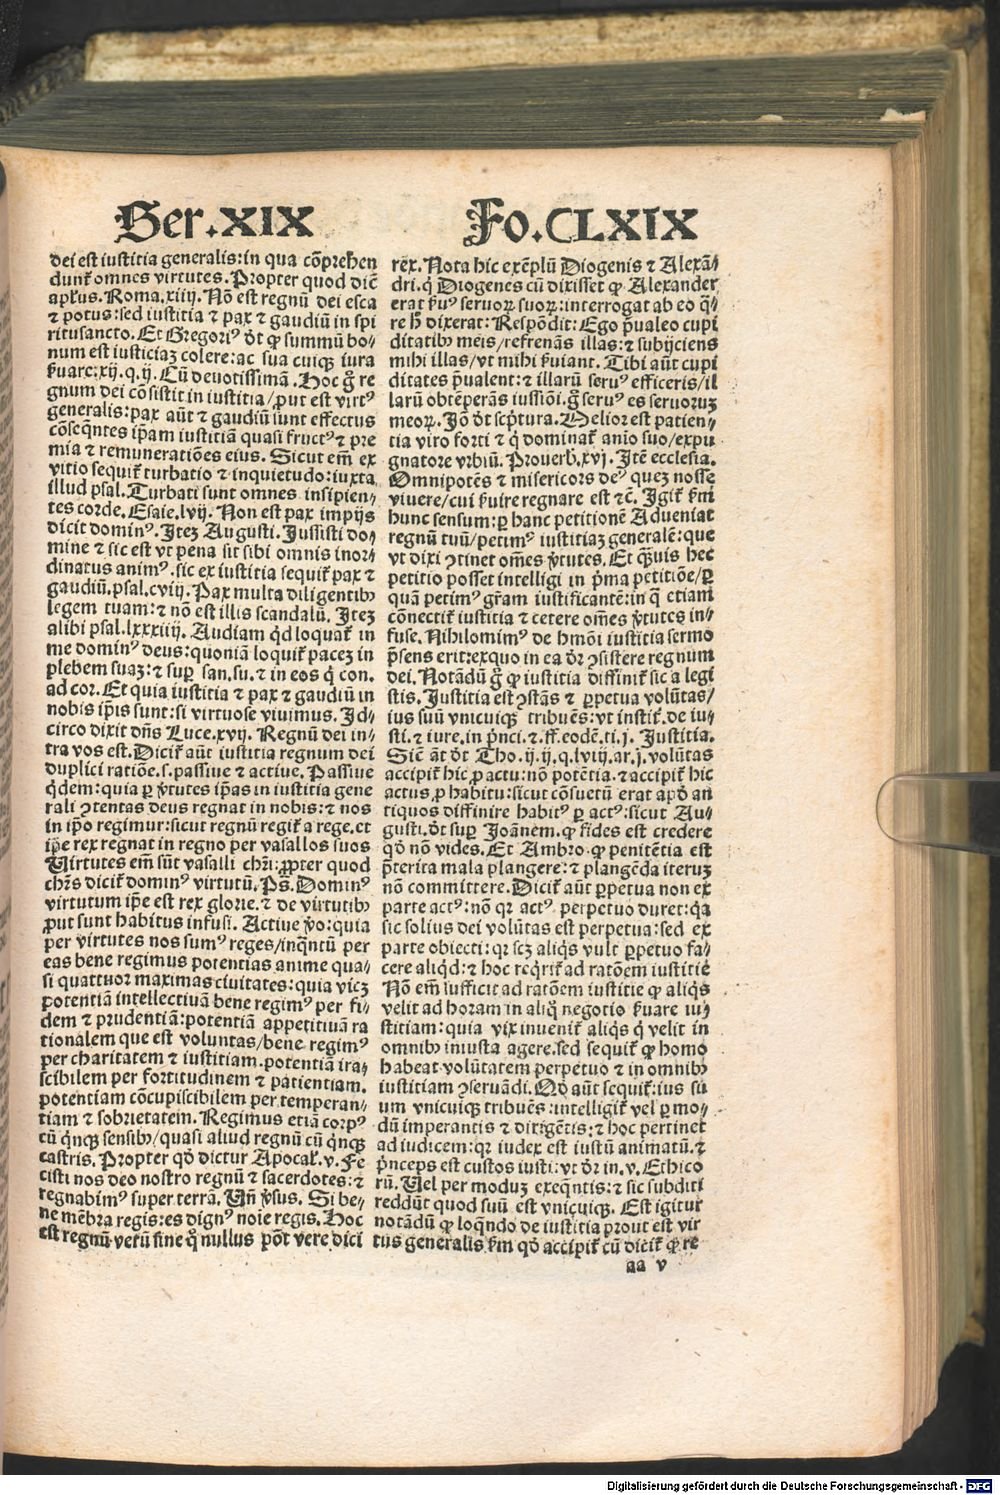 Ser.XIX
Fo.CLXIX
dei est iustitia generalis:in qua cõprehen
dunt᷑ omnes virtutes. Propter quod dic̃
apl'us. Roma.xiiij. Nõ est regnũ dei esca
⁊ potus:sed iustitia ⁊ pax ⁊ gaudiũ in spi
ritusancto. Et Gregoriꝰ dt̃ ꝙ summũ bo-
num est iusticiaꝫ colere:ac sua cuiqꝫ iura
ẜuare:xij.q.ij. Cũ deuotissimã. Hoc g̃ re
gnum dei cõsistit in iustitia/ꝓut est virtꝰ
generalis:pax aũt ⁊ gaudiũ sunt effectus
cõseq̃ntes ip̃am iustitiã quasi fructꝰ ⁊ pre
mia ⁊ remunerationẽs eius. Sicut em̃ ex
vitio sequit᷑ turbatio ⁊ inquietudo:iuxta
illud psal. Turbati sunt omnes insipien-
tes corde. Esaie.lvij. Non est pax impijs
dicit dominꝰ. Iteꝫ Augusti. Iussisti do-
mine ⁊ sic est vt pena sit sibi omnis inor-
dinatus animꝰ. sic ex iustitia sequit᷑ pax ⁊
gaudiũ.psal.cviij. Pax multa diligentibꝰ
legem tuam:⁊ nõ est illis scandalũ. Iteꝫ
alibi psal.lxxxiiij. Audiam qd̃ loquat᷑ in
me dominꝰ deus:quoniã loquit᷑ paceꝫ in
plebem suaꝫ:⁊ suꝑ san.su.⁊ in eos q̃ con.
ad cor. Et quia iustitia ⁊ pax ⁊ gaudiũ in
nobis ip̃is sunt:si virtuose viuimus. Id-
circo dixit dñs Luce.xvij. Regnũ dei in-
tra vos est. Dicit᷑ aũt iustitia regnum dei
duplici ratiõe.s.passiue ⁊ actiue. Passiue
q̃dem:quia ꝑ v̓tutes ip̃as in iustitia gene
rali ꝯtentas deus regnat in nobis:⁊ nos
in ip̃o regimur:sicut regnũ regit᷑ a rege.et
ip̃e rex regnat in regno per vasallos suos
Virtutes em̃ sũt vasalli chr̃i:ꝓpter quod
chr̃s dicit᷑ dominꝰ virtutũ. Ps̃. Dominꝰ
virtutum ip̃e est rex glorie.⁊ de virtutibꝰ
ꝓut sunt habitus infusi. Actiue ṽo:quia
per virtutes nos sumꝰ reges/inq̃ntũ per
eas bene regimus potentias anime qua-
si quattuor maximas ciuitates:quia vicꝫ
potentiã intellectiuã bene regimꝰ per fi-
dem ⁊ prudentiã:potentiã appetitiuã ra
tionalem que est voluntas/bene regimꝰ
per charitatem ⁊ iustitiam.potentiã ira-
scibilem per fortitudinem ⁊ patientiam.
potentiam cõcupiscibilem per temperan-
tiam ⁊ sobrietatem. Regimus etiã corpꝰ
cũ q̃nqꝫ sensibꝰ/quasi aliud regnũ cũ q̃nqꝫ
castris. Propter qd̃ dictur Apocal᷑.v. Fe
cisti nos deo nostro regnũ ⁊ sacerdotes:⁊
regnabimꝰ super terrã. Vñ v̓sus. Si be-
ne mẽbra regis:es dignꝰ noĩe regis. Hoc
est regnũ verũ sine q̃ nullus põt vere dici
rex̃. Nota hic exẽplũ Diogenis ⁊ Alexã-
dri.q̃ Diogenes cũ dixisset ꝙ Alexander
erat ẜuꝰ seruoꝝ suoꝝ:interrogat ab eo q̃-
re h̃ dixerat:Respõdit: Ego p̃ualeo cupi
ditatibꝰ meis/refrenãs illas:⁊ subijciens
mihi illas/vt mihi ẜuiant. Tibi aũt cupi
ditates p̃ualent:⁊ illarũ seruꝰ efficeris/il
larũ obtẽperãs iussiõi.g̃ seruꝰ es seruoruꝫ
meoꝝ. Iõ dt̃ scp̃tura. Melior est patien-
tia viro forti ⁊ q̃ dominat᷑ anĩo suo/expu
gnatore vrbiũ. Prouerb̃.xvj. Itẽ ecclesia.
Omnipotẽs ⁊ misericors deꝰ queꝫ nosse
viuere/cui ẜuire regnare est ⁊c̃. Igit᷑ ẜm
hunc sensum:ꝑ hanc petitionẽ Adueniat
regnũ tuũ/petimꝰ iustitiaꝫ generalẽ:que
vt dixi ꝯtinet om̃es v̓tutes. Et q̃uis hec
petitio posset intelligi in p̃ma petitiõe/ꝑ
quã petimꝰ gr̃am iustificantẽ:in q̃ etiam
cõnectit᷑ iustitia ⁊ cetere om̃es v̓tutes in-
fuse. Nihilominꝰ de hmõi iustitia sermo
p̃sens erit:exquo in ea dr̃ ꝯsistere regnum
dei. Notãdũ g̃ ꝙ iustitia diffinit᷑ sic a legi
stis. Iustitia est ꝯstãs ⁊ ꝑpetua volũtas/
ius suũ vnicuiqꝫ tribuẽs:vt instit᷑.de iu-
sti.⁊ iure.in p̃nci.⁊.ff.eodẽ.ti.j. Iustitia.
Sic̃ ãt dt̃ Tho.ij.ij.q.lviij.ar.j.volũtas
accipit᷑ hic ꝓ actu:nõ potẽtia.⁊ accipit᷑ hic
actus ꝓ habitu:sicut cõsuetũ erat apd̃ an
tiquos diffinire habitꝰ ꝑ actꝰ:sicut Au-
gusti.dt̃ suꝑ Ioãnem.ꝙ fides est credere
qd̃ nõ vides. Et Ambro.ꝙ penitẽtia est
p̃terita mala plangere:⁊ plangẽda iteruꝫ
nõ committere. Dicit᷑ aũt ꝑpetua non ex
parte actꝰ:nõ qꝛ actꝰ perpetuo duret:q̃a
sic solius dei volũtas est perpetua:sed ex
parte obiecti:qꝛ scꝫ aliq̃s vult ꝑpetuo fa-
cere aliqd̃:⁊ hoc req̃rit᷑ ad ratõem iustitie
Nõ em̃ sufficit ad ratõem iustitie ꝙ aliq̃s
velit ad horam in aliq̃ negotio ẜuare iu-
stitiam:quia vix inuenit᷑ aliq̃s q̃ velit in
omnibꝰ iniusta agere.sed sequit᷑ ꝙ homo
habeat volũtatem perpetuo ⁊ in omnibꝰ
iustitiam ꝯseruãdi. Qd̃ aũt sequit᷑:ius su
um vnicuiqꝫ tribuẽs:intelligit᷑ vel ꝑ mo-
dũ imperantis ⁊ dirigẽtis:⁊ hoc pertinet
ad iudicem:qꝛ iudex est iustũ animatũ.⁊
p̃nceps est custos iusti:vt dr̃ in.v. Ethico
rũ. Vel per moduꝫ exeq̃ntis:⁊ sic subditi
reddũt quod suũ est vnicuiqꝫ. Est igitur
notãdũ ꝙ loq̃ndo de iustitia prout est vir
tus generalis ẜm qd̃ accipit᷑ cũ dicit᷑ ꝙ re
aa v
Digitalisierung gefördert durch die Deutsche Forschungsgemeinschaft - DFG